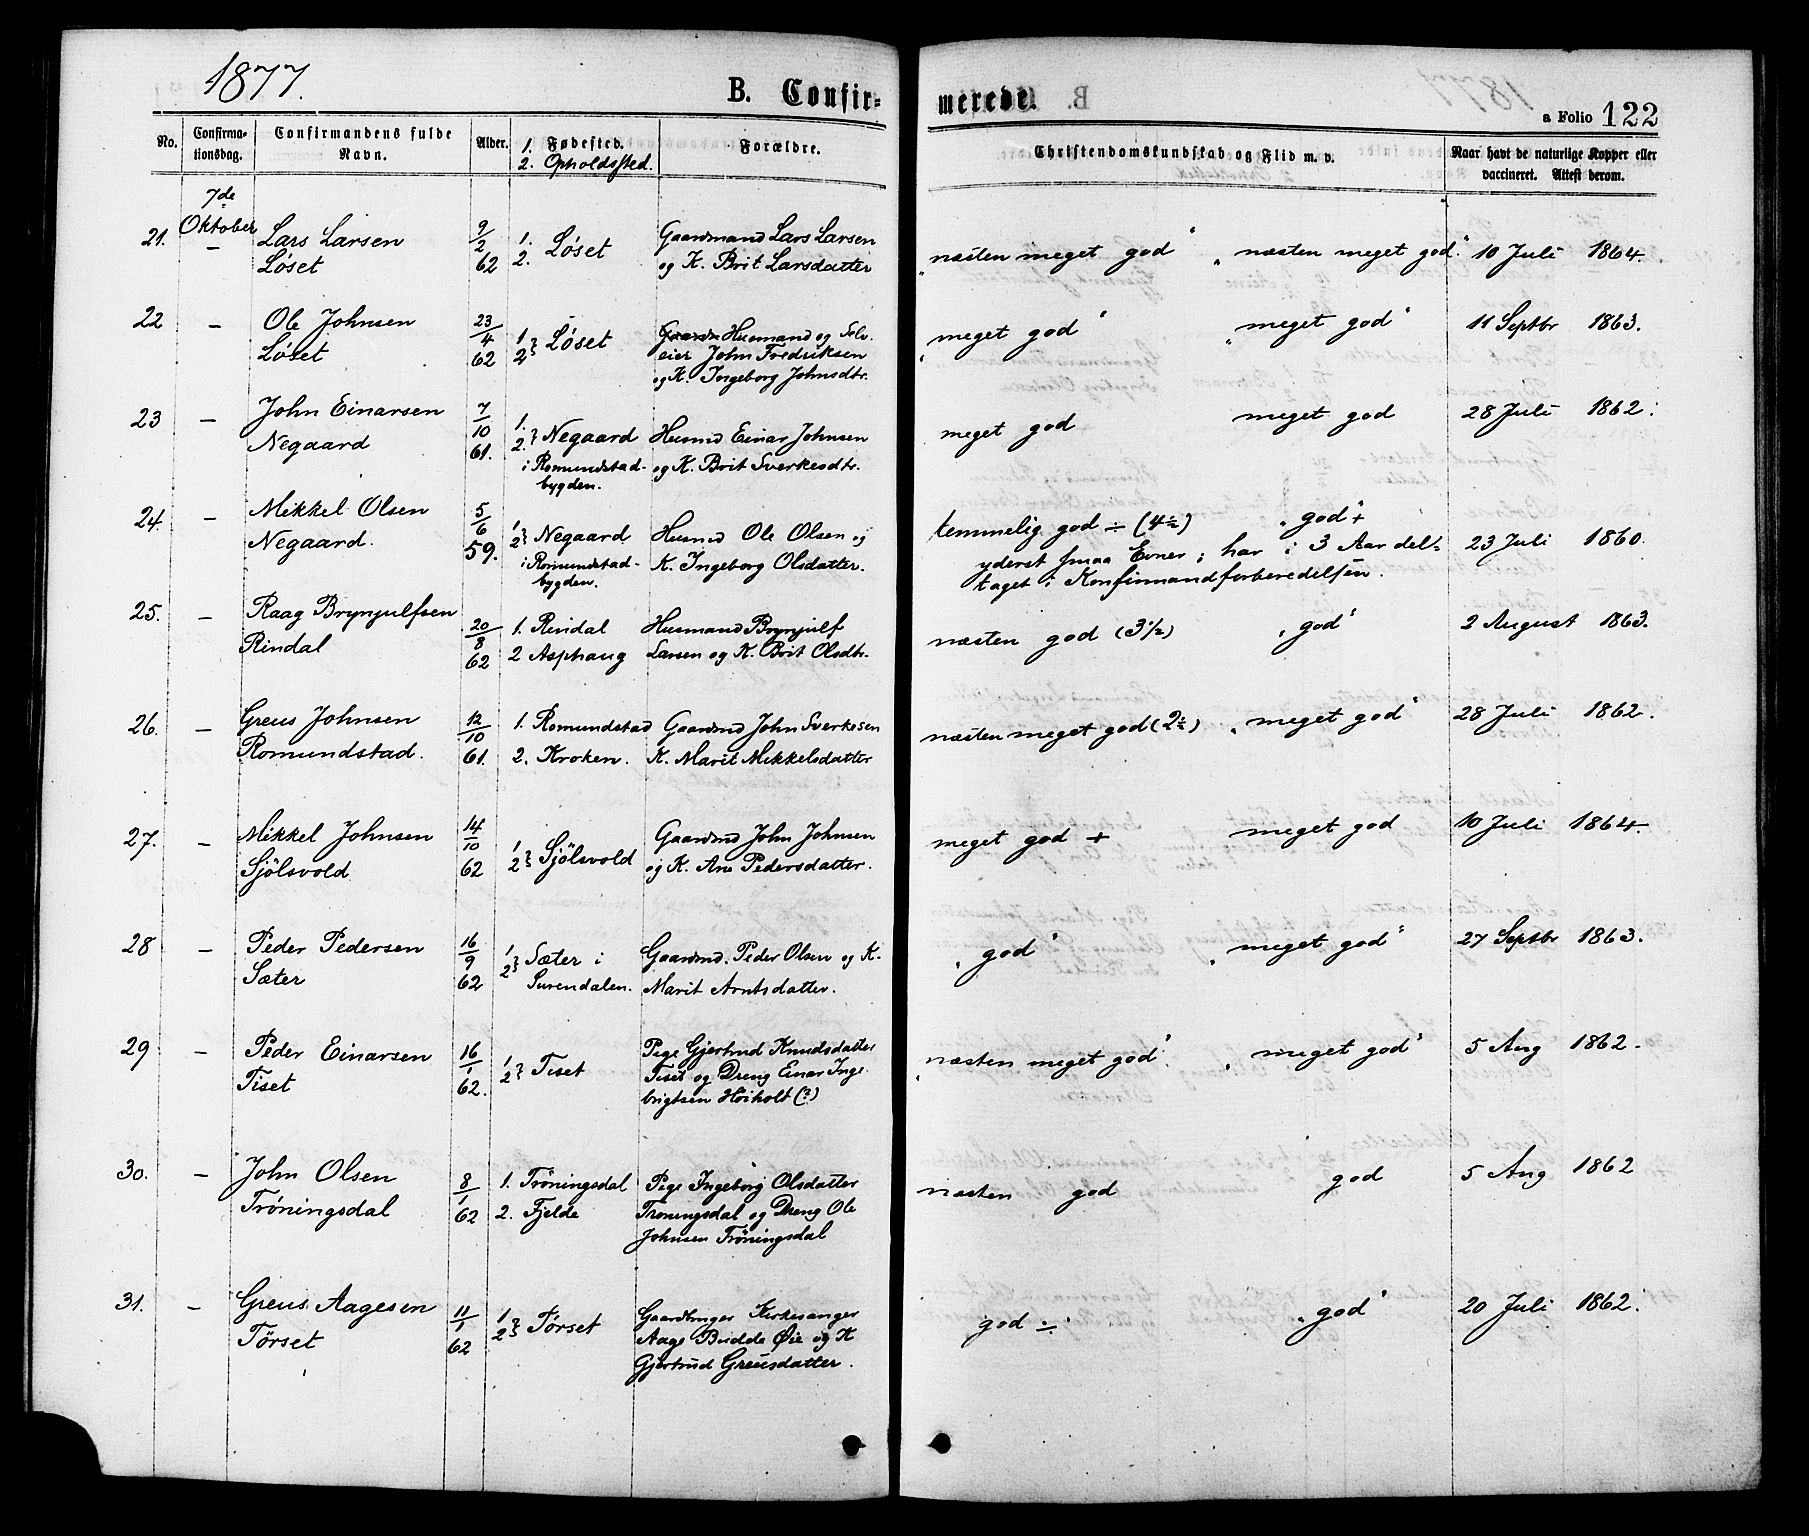 1877.
B. Confir=
merede.
a Folio 122
No. Confirma-tionsdag. Confirmandens fulde Navn. Alder. 1. Fødested. 2. Opholdssted. Forældre. Christendomskundskab og Flid m. v. Naar havt de naturlige Kopper eller vaccineret. Attest derom.
7de
Oktober
21. – Lars Larsen 9/2 1. Løset Gaardmand Lars Larsen "næsten meget god" "næsten meget god". 10 Juli 1864.
Løset 62 2. og K. Brit Larsdatter
22 – Ole Johnsen 23/4 1 Løset Husmand og Selv- "meget god" "meget god" 11 Septbr 1863.
Løset 62 2 eier John Fredriksen
og K. Ingeborg Johnsdtr.
23 – John Einarsen 7/10 1. Negaard Husmd Einar Johnsen meget god meget god 28 Juli 1862.
Negaard 61. 2. i Romundstad- og K. Brit Sverkesdtr.
bygden.
24. – Mikkel Olsen 5/6 1 Negaard Husmd Ole Olsen og temmelig god ÷ (4½) "god"+ 23 Juli 1860.
Negaard. 59. 2 i Romundstad- K. Ingeborg Olsdatter. yderst smaa Evner; har i 3 Aar del=
bygden. taget i Konfirmandforberedelsen.
25. – Raag Brynjulfsen 20/8 1. Rindal Husmand Brynjulf næsten god (3½) "god" 2 August 1863.
Rindal 62 2 Asphaug Larsen og K. Brit Olsdtr.
26. – Greus Johnsen 12/10 1. Romundstad Gaardmd John Sverkesen næsten meget god (2½) "meget god" 28 Juli 1862.
Romundstad. 61. 2. Kroken. K. Marit Mikkelsdatter
27. – Mikkel Johnsen 14/10 1 Sjölsvold Gaardmd John Johnsen meget god + meget god 10 Juli 1864.
Sjölsvold 62 2 og K. Ane Pedersdatter.
28 – Peder Pedersen 16/9 1 Sæter i Gaardmd. Peder Olsen og K. "god" "meget god" 27 Septbr 1863.
Sæter 62 2 Surendalen. Marit Arntsdatter.
29 – Peder Einarsen 16/1 1 Tiset Pige Gjertrud Knudsdatter "næsten meget god". "meget god" 5 Aug 1862.
Tiset 62. 2 Tiset og Dreng Einar Inge
brigtsen Høiholt (?)
30. – John Olsen 8/1 1. Tröningsdal Pige Ingeborg Olsdatter næsten god god 5 Aug 1862
Tröningsdal 62 2. Fjelde Tröningsdal og Dreng Ole
Johnsen Tröningsdal
31. – Greus Aagesen 11/1 1 Tørset Gaardbruger Kirkesanger god ÷. "god" 20 Juli 1862.
Tørset 62 2 Aage Budde Øie og K
Gjertrud Greusdatter.